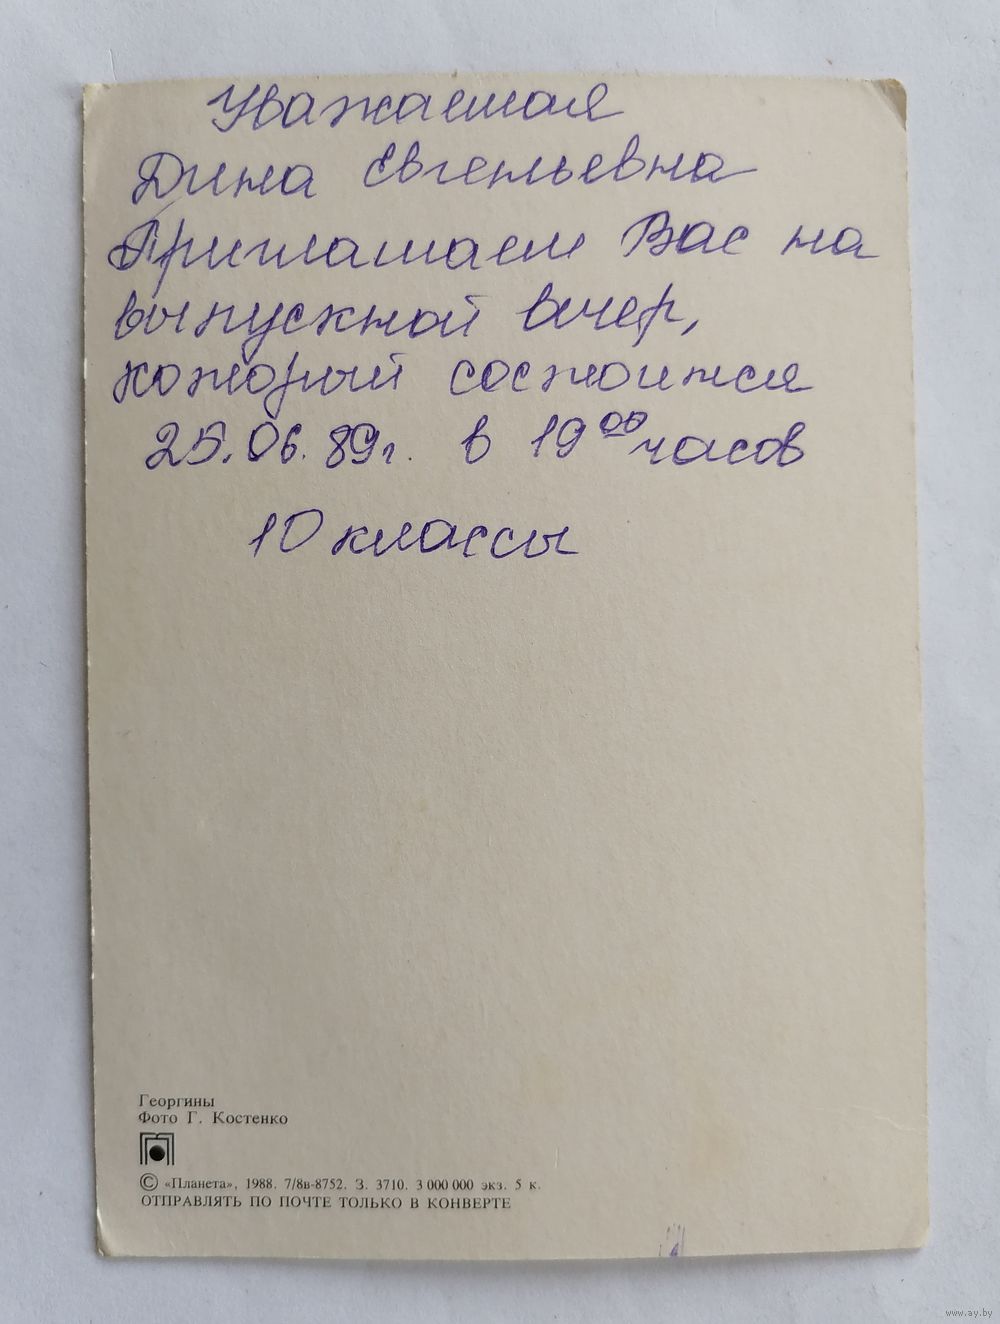 Уважаемая
Дина Евгеньевна
Приглашаем Вас на
выпускной вечер,
который состоится
25.06.89г. в 19 00 часов
10 классы
Георгины
Фото Г. Костенко
© «Планета», 1988. 7/8в-8752. З. 3710. 3 000 000 экз. 5 к.
ОТПРАВЛЯТЬ ПО ПОЧТЕ ТОЛЬКО В КОНВЕРТЕ
www.ay.by